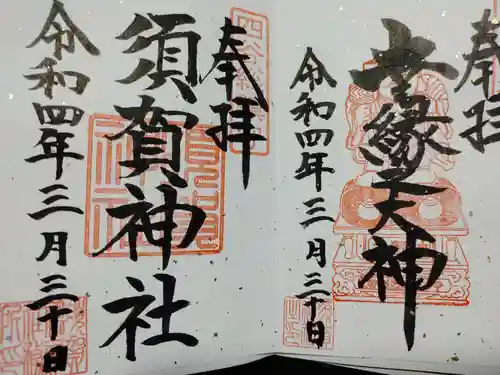 奉拝
幸縁天神
令和四年三月三十日
奉拝
須賀神社
令和四年三月三十日